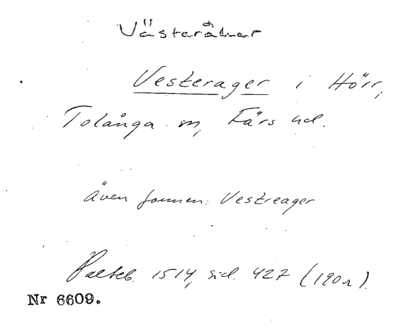 Västeråker
Vesterager i Hörr,
Tolånga sn, Färs hd.
även formen: Vestreager
Palteb. 1514, sid. 427 (190r).
Nr 6609.